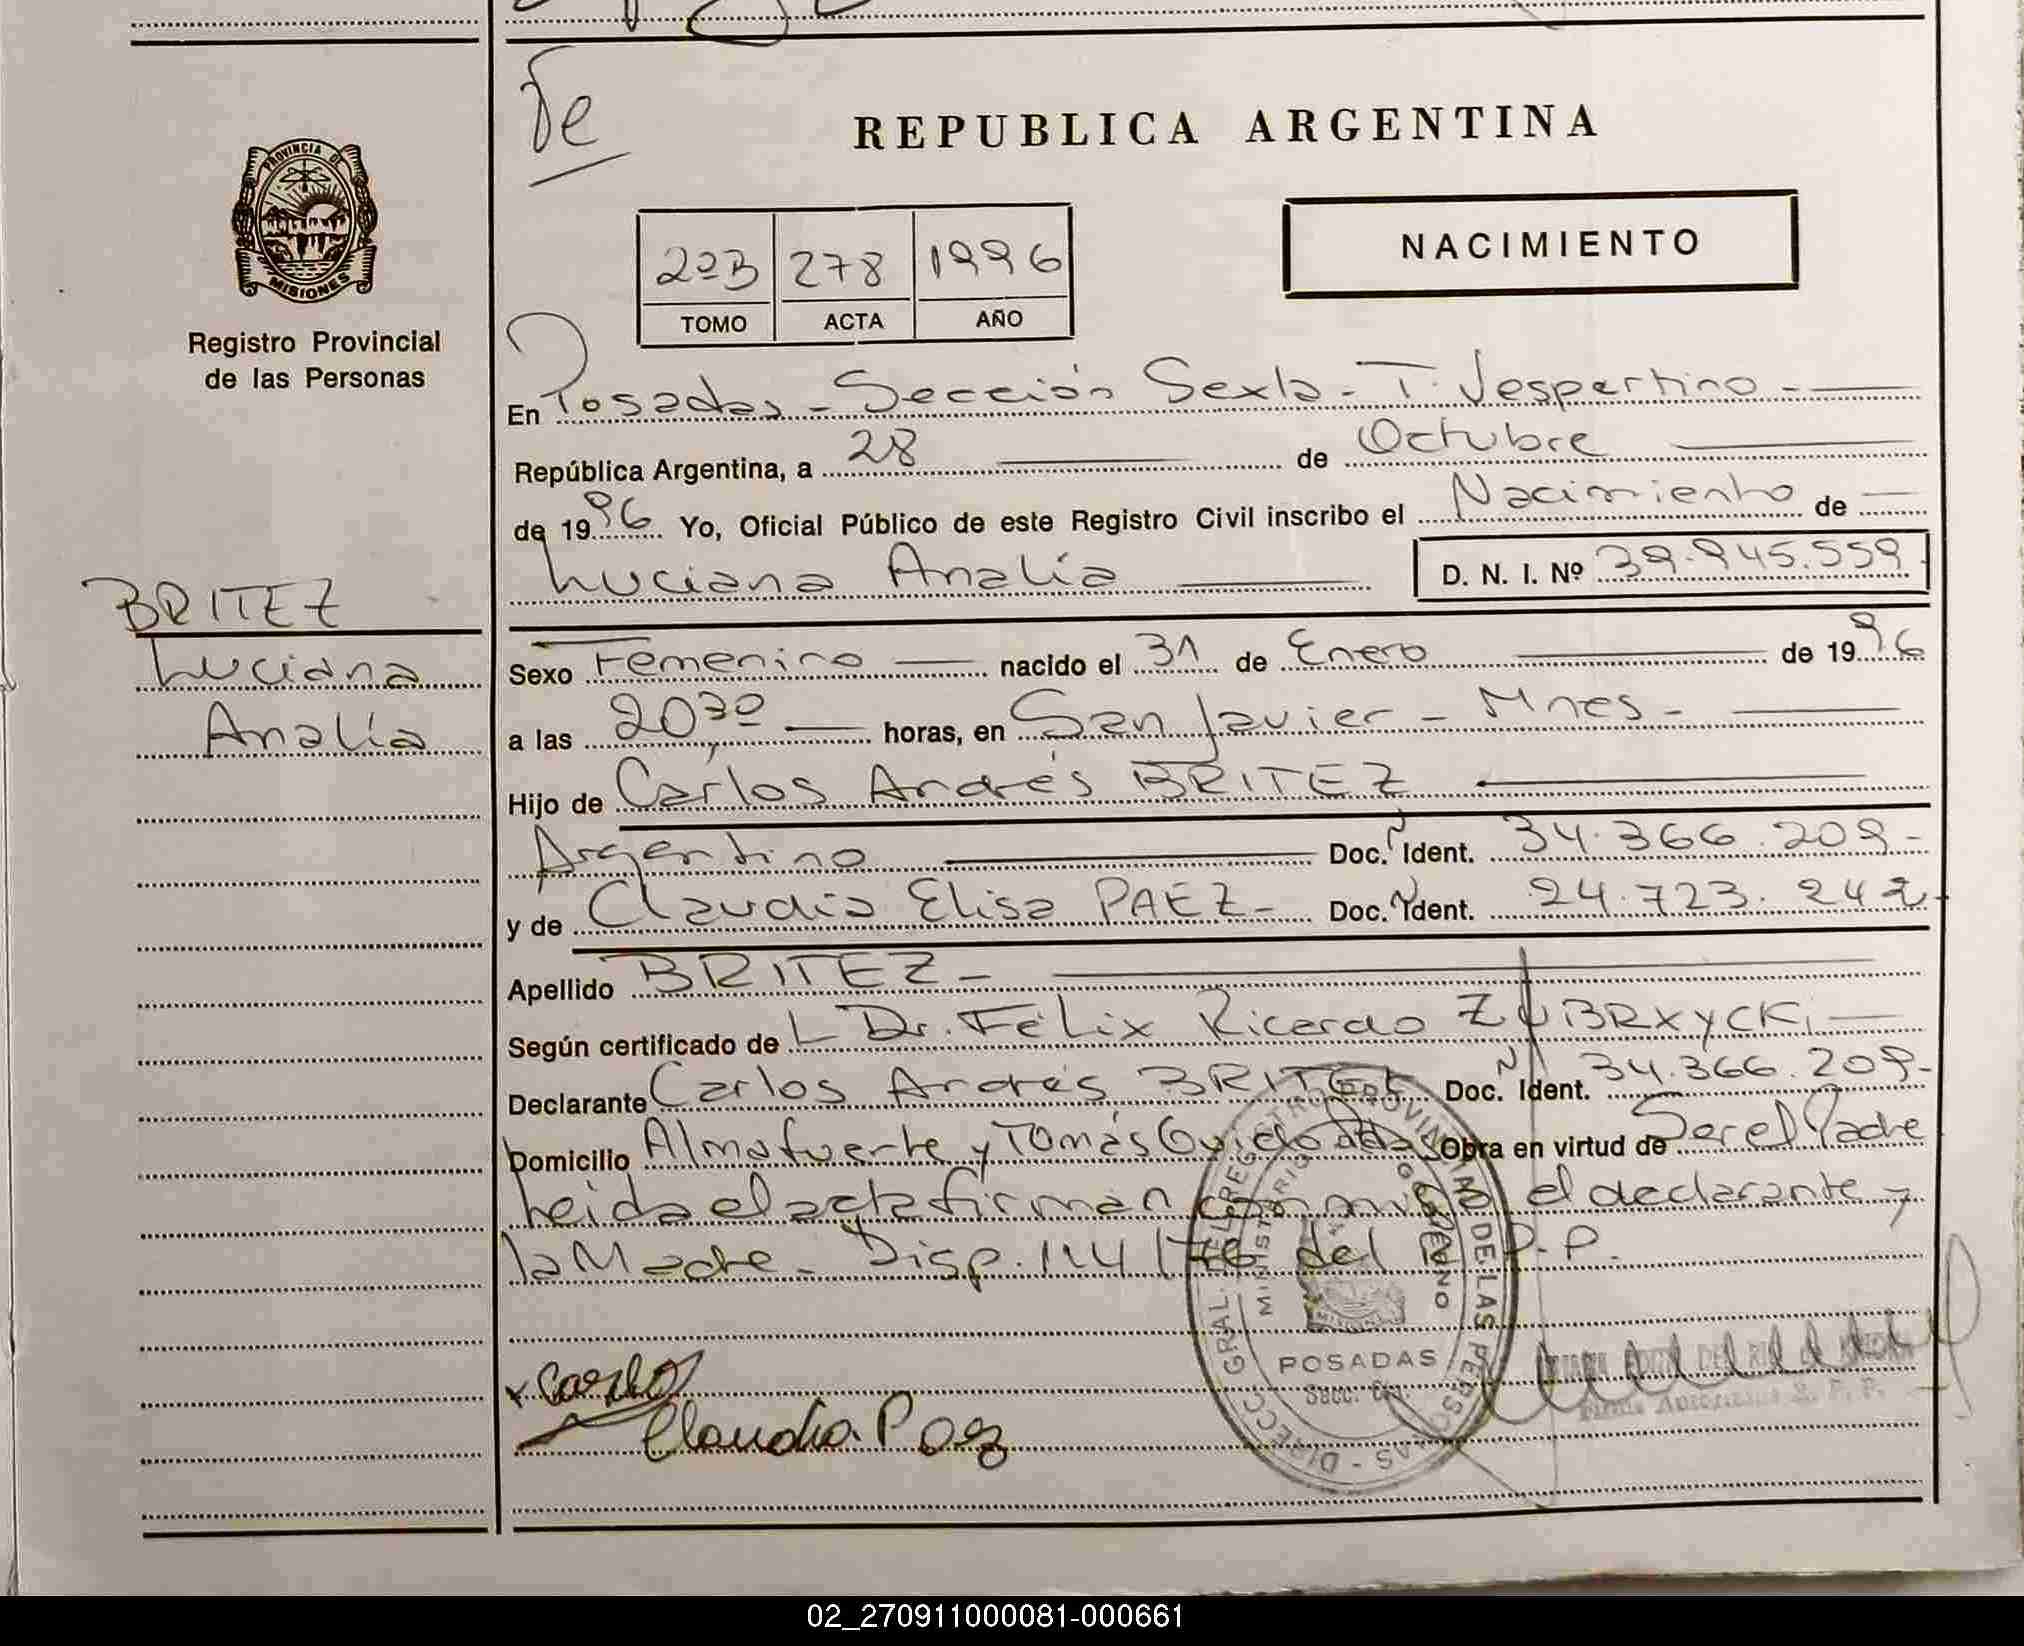 Te
REPUBLICA ARGENTINA
PROVINCIA DE
MISIONES
Registro Provincial
de las Personas
2ºB 278 1996
TOMO ACTA AÑO
NACIMIENTO
En Posadas - Sección Sexta - T. Vespertino -
República Argentina, a 28 de Octubre
de 1996 Yo, Oficial Público de este Registro Civil inscribo el Nacimiento de
Luciana Analía D. N. I. Nº 39.945.559
BRITEZ
Luciana
Analía
Sexo Femenino nacido el 31 de Enero de 1996
a las 20,30 horas, en San Javier - Mnes -
Hijo de Carlos Andrés BRITEZ
Argentino Doc. Ident. 34.366.209-
y de Claudia Elisa PAEZ - Doc. Ident. 24.723.242-
Apellido BRITEZ -
Según certificado de L Dr. Félix Ricardo ZUBRXYCKi
Declarante Carlos Andrés BRITEZ Doc. Ident. 34.366.209-
Domicilio Almafuerte y Tomás Guido Pdas Obra en virtud de Ser el Padre
Leida el acta firman conmigo el declarante y
la Madre - Disp. 114/76 del R.P.P.
DIRECC. GRAL. DEL REGISTRO PROVINCIAL DE LAS PERSONAS
MINISTERIO GOBIERNO
POSADAS
Secc. 6ta.
x Carlos
Claudia Paez
02_270911000081-000661